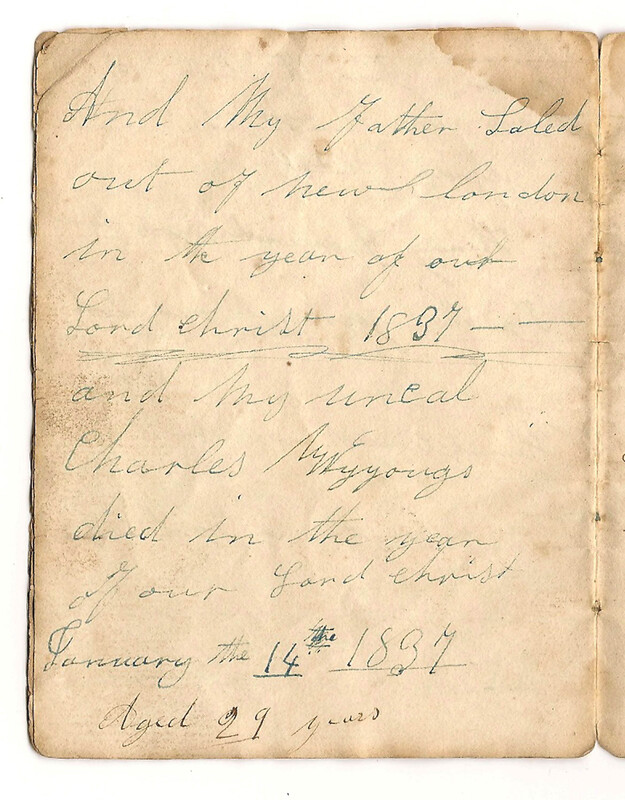 And My Father Saled
out of new london
in the year of our
Lord christ 1837 — —
and My uncal
Charles
died in the year
of our Lord christ
January the 14 the 1837
Aged 29 years